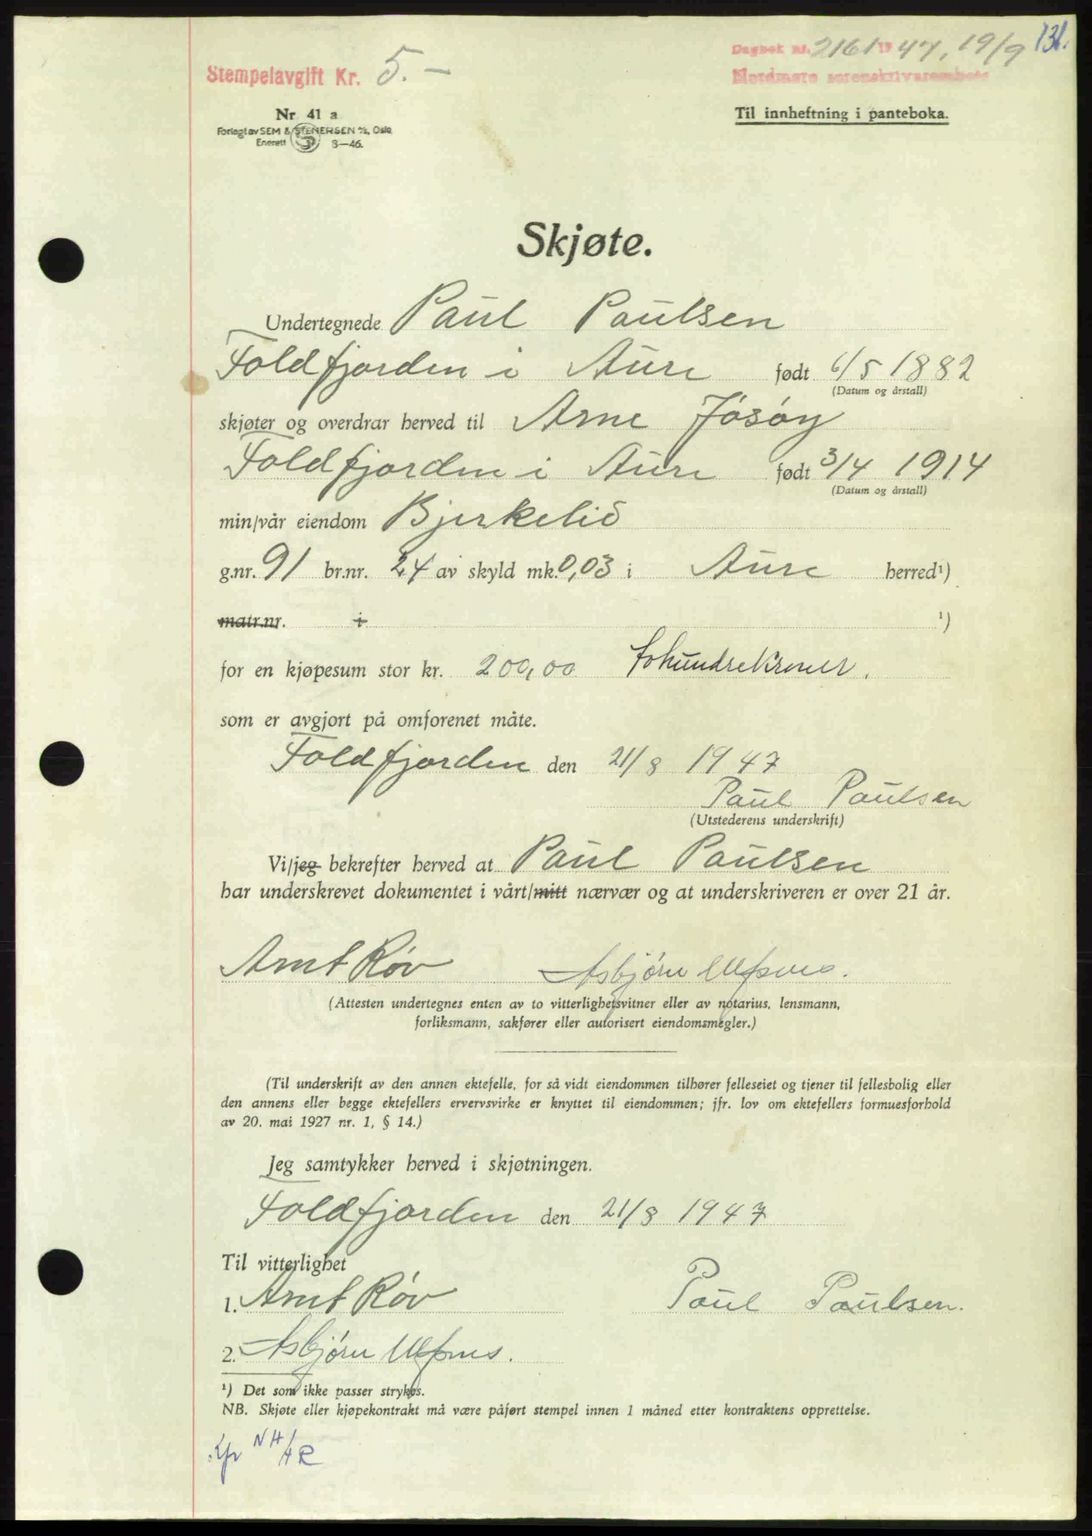 131.
Dagbok nr. 2161 1947, 19/9
Stempelavgift Kr. 5.—
Nordmøre sorenskriverembete
Nr 41 a
Til innheftning i panteboka.
Forlagt av SEM & STENERSEN A/S, Oslo
Enerett 8—46.
Skjøte.
Undertegnede Paul Paulsen
Foldfjorden i Aure født 6/5 1882
(Datum og årstall)
skjøter og overdrar herved til Arne Jøsøy
Foldfjorden i Aure født 3/4 1914
(Datum og årstall)
min/vår eiendom Bjerkelid
g.nr. 91 br.nr. 24 av skyld mk. 0,03 i Aure herred¹)
matr.nr. i ¹)
for en kjøpesum stor kr. 200,00 tohundrekroner.
som er avgjort på omforenet måte.
Foldfjorden den 21/8 1947
Paul Paulsen
(Utstederens underskrift)
Vi/jeg bekrefter herved at Paul Paulsen
har underskrevet dokumentet i vårt/mitt nærvær og at underskriveren er over 21 år.
Arnt Røv Asbjørn
(Attesten undertegnes enten av to vitterlighetsvitner eller av notarius, lensmann,
forliksmann, sakfører eller autorisert eiendomsmegler.)
(Til underskrift av den annen ektefelle, for så vidt eiendommen tilhører felleseiet og tjener til fellesbolig eller
den annens eller begge ektefellers ervervsvirke er knyttet til eiendommen; jfr. lov om ektefellers formuesforhold
av 20. mai 1927 nr. 1, § 14.)
Jeg samtykker herved i skjøtningen.
Foldfjorden den 21/8 1947
Til vitterlighet
1. Arnt Røv Paul Paulsen.
2. Asbjørn
¹) Det som ikke passer strykes.
NB. Skjøte eller kjøpekontrakt må være påført stempel innen 1 måned etter kontraktens opprettelse.
NH/HR